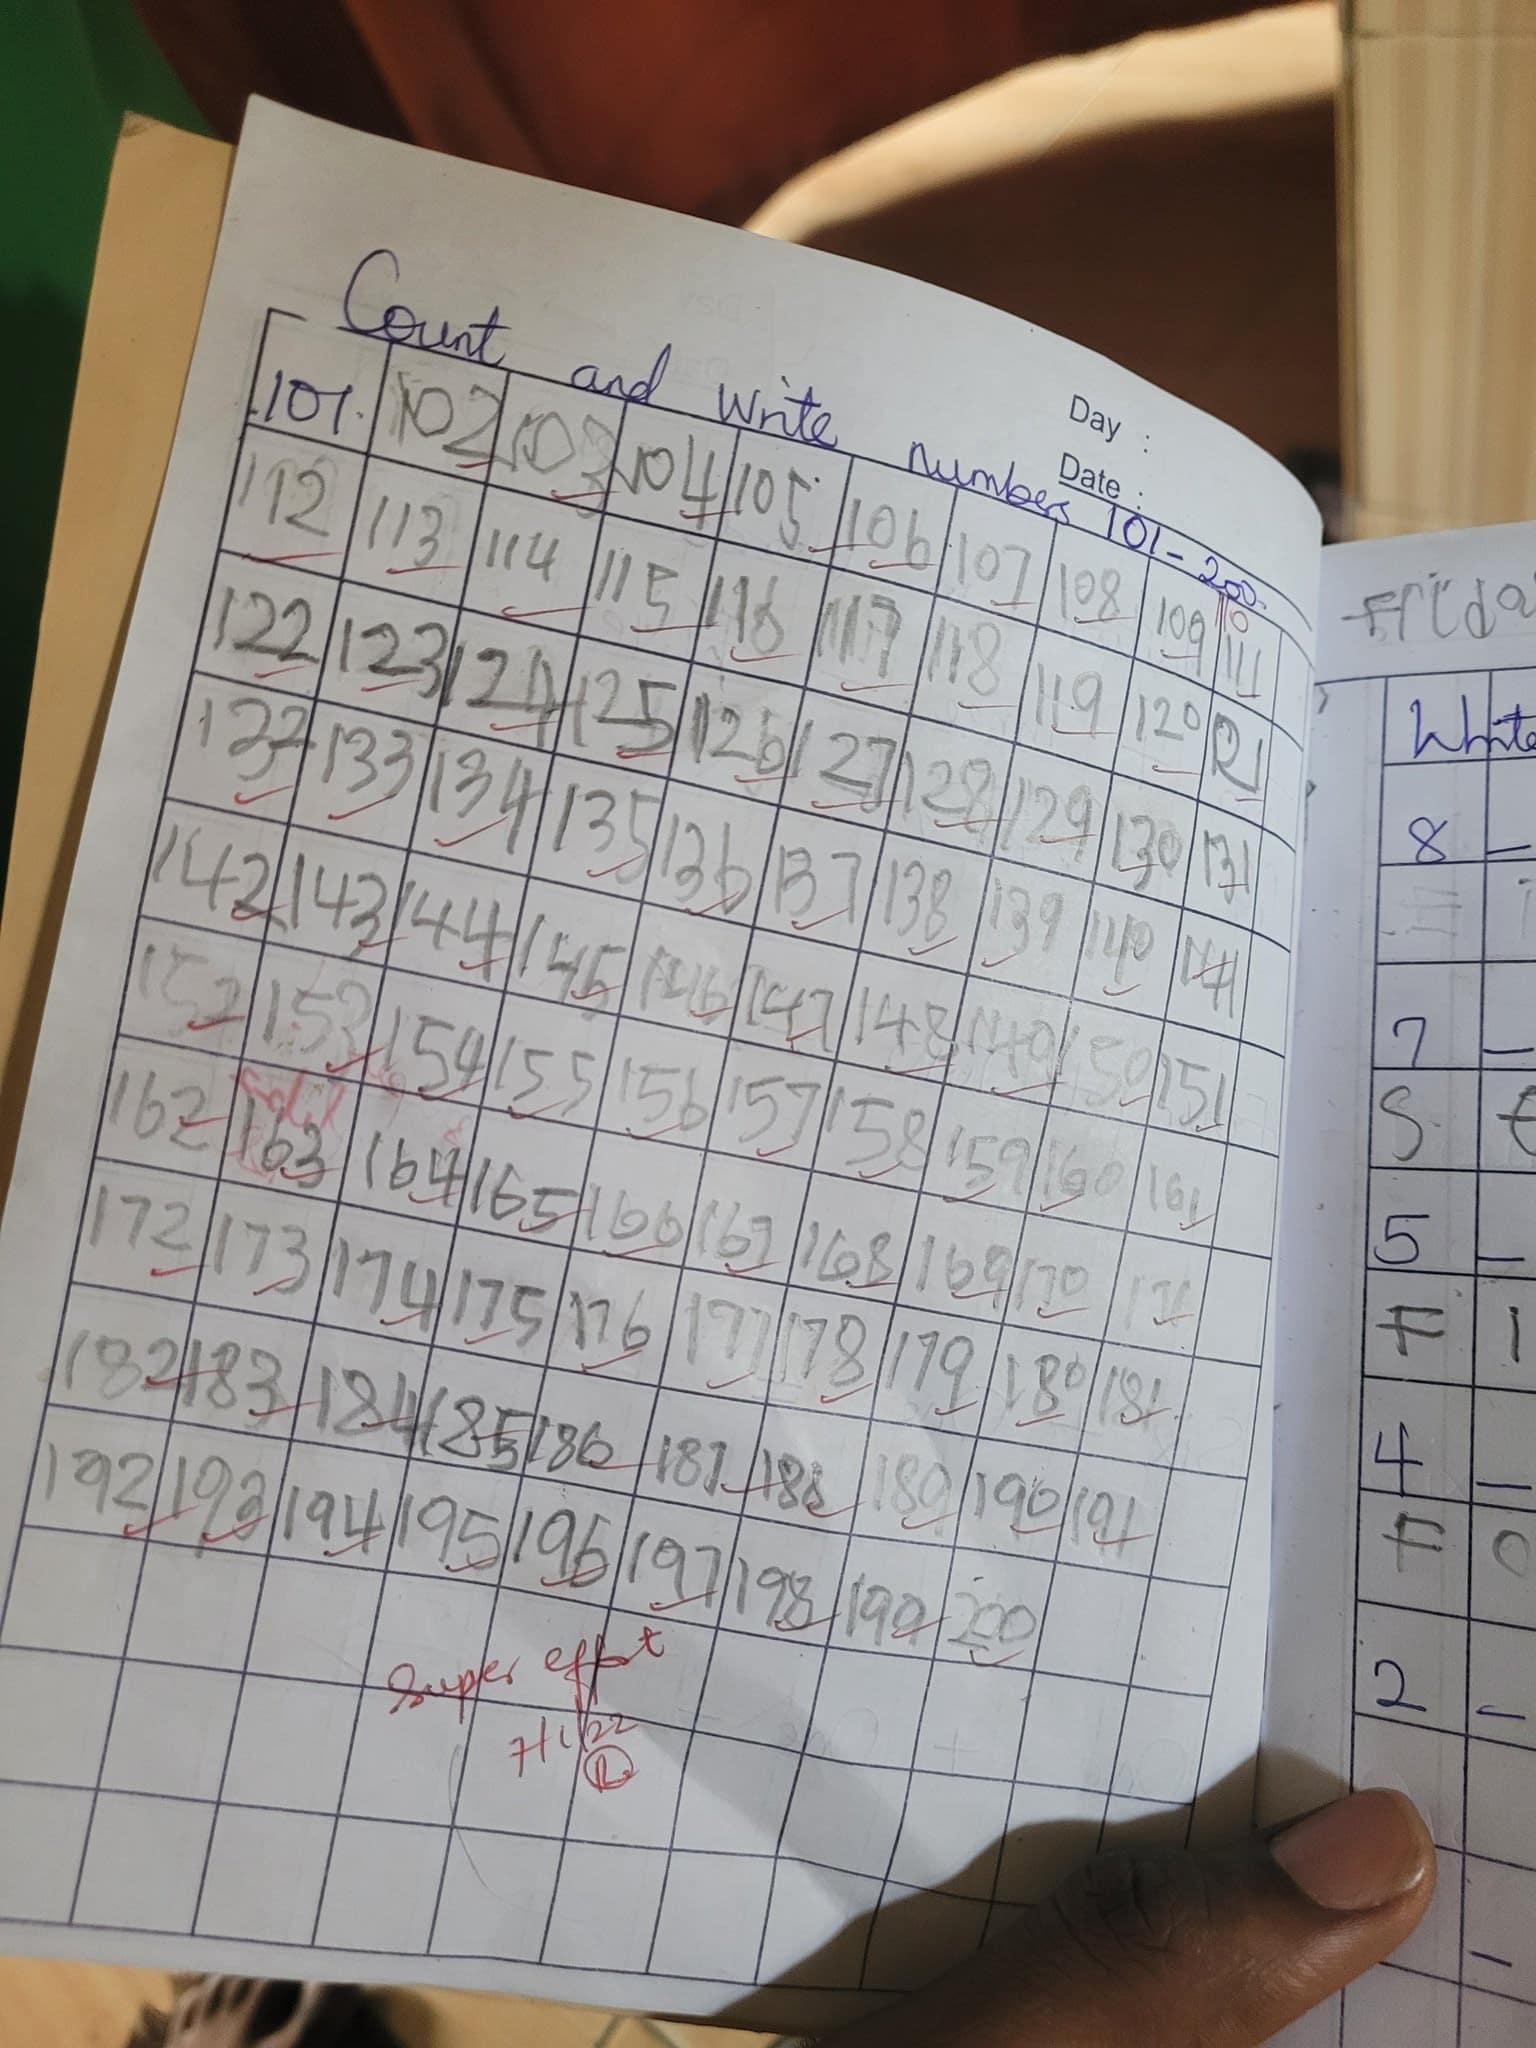 Day :
Date :
Count and write numbers 101-200.
101. 102 103 104 105 106 107 108 109 110 111
112 113 114 115 116 117 118 119 120 121
122 123 124 125 126 127 128 129 130 131
132 133 134 135 136 137 138 139 140 141
142 143 144 145 146 147 148 149 150 151
152 153 154 155 156 157 158 159 160 161
162 163 164 165 166 167 168 169 170 171
172 173 174 175 176 177 178 179 180 181
182 183 184 185 186 187 188 189 190 191
192 193 194 195 196 197 198 199 200
Super effort
7/1/22
Frida
Write
8 _
7 _
S
5 _
F 1
4 _
F 0
2 _
_